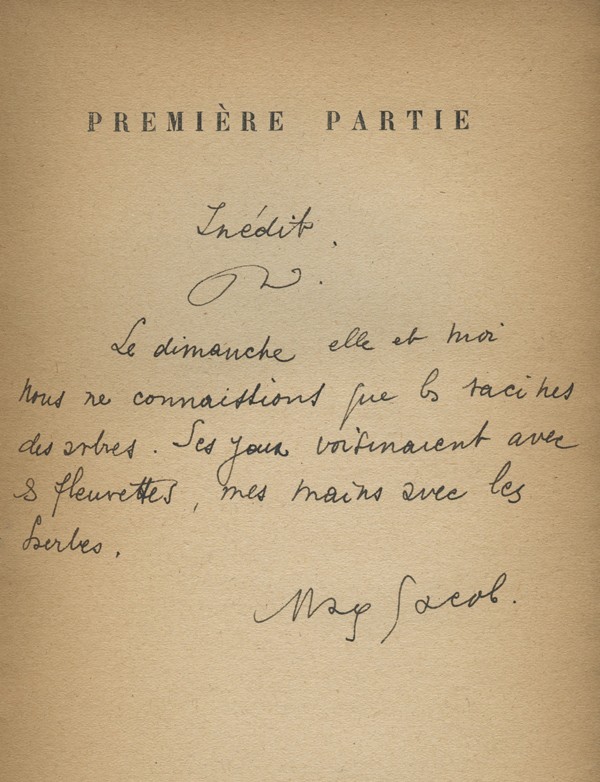 PREMIÈRE PARTIE
Inédit.
Le dimanche elle et moi
nous ne connaissions que les racines
des arbres. Ses yeux voisinaient avec
les fleurettes, mes mains avec les
herbes.
Max Jacob.